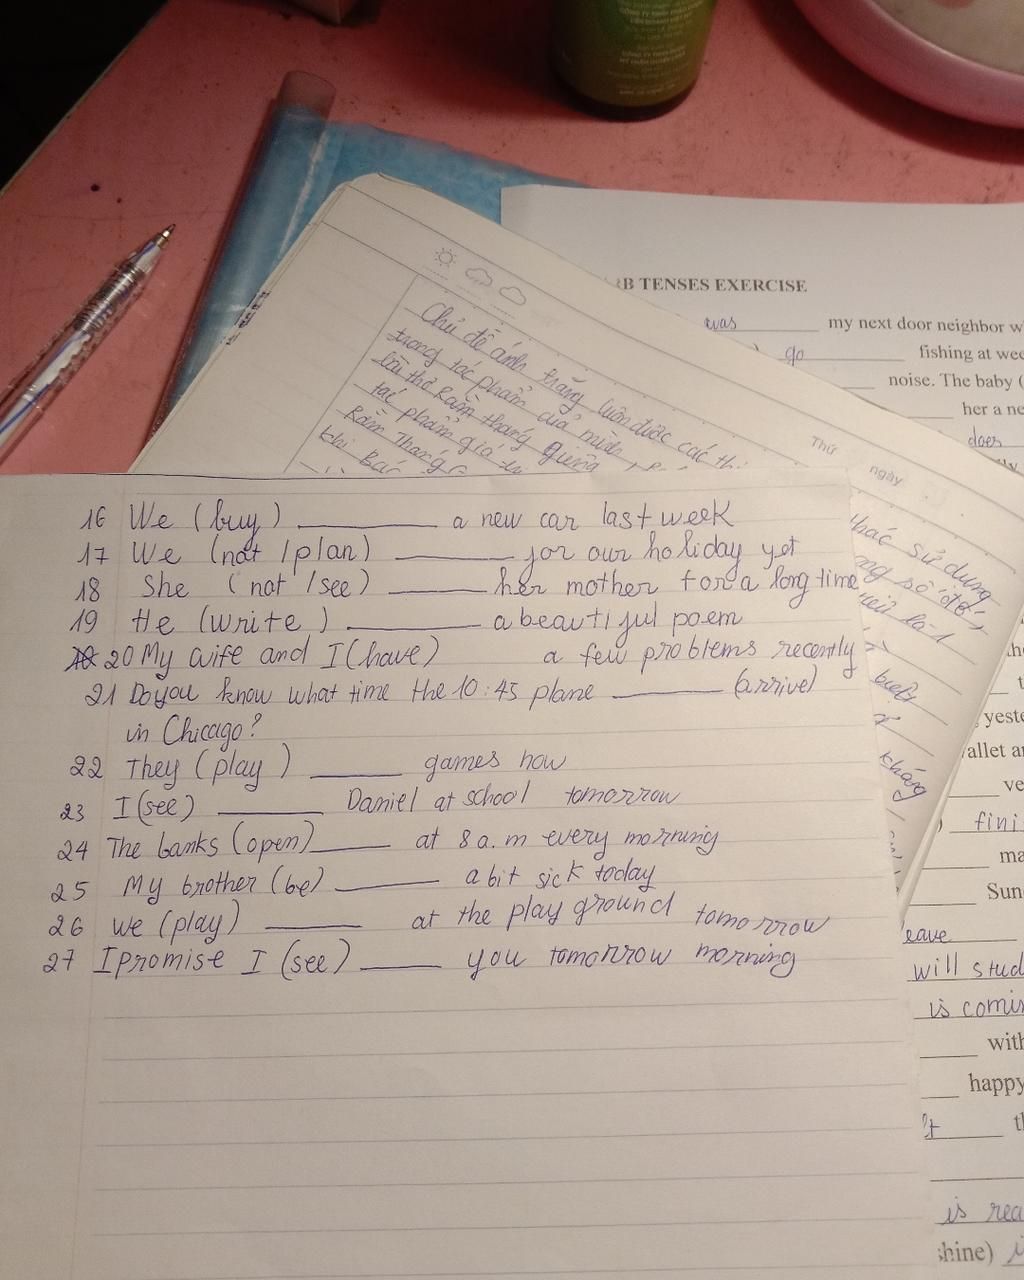 CÔNG TY
B TENSES EXERCISE
was my next door neighbor w
go fishing at wee
noise. The baby (
her a ne
does
Chủ đề ánh trăng luôn được các thi
trong tác phẩm của mình
bài thơ Rằm tháng giêng
tác phẩm
Rằm Tháng G
khi Bác
Thứ ngày
thác sử dụng
ng số đó,
biết
kháng
yeste
allet an
ve
) fini
ma
Sun
eave
will stud
is comin
with
happy
is rea
shine)
16 We (buy) ________ a new car last week
17 We (not / plan) ________ for our holiday yet
18 She (not / see) ________ her mother for a long time
19 He (write ) ________ a beautiful poem
20 My wife and I (have) a few problems recently
21 Do you know what time the 10:45 plane ________ (arrive)
in Chicago?
22 They (play ) ______ games now
23 I (see) ________ Daniel at school tomorrow
24 The banks (open) ______ at 8 a.m every morning
25 My brother (be) ________ a bit sick today
26 We (play) ________ at the play ground tomorrow
27 I promise I (see) ______ you tomorrow morning